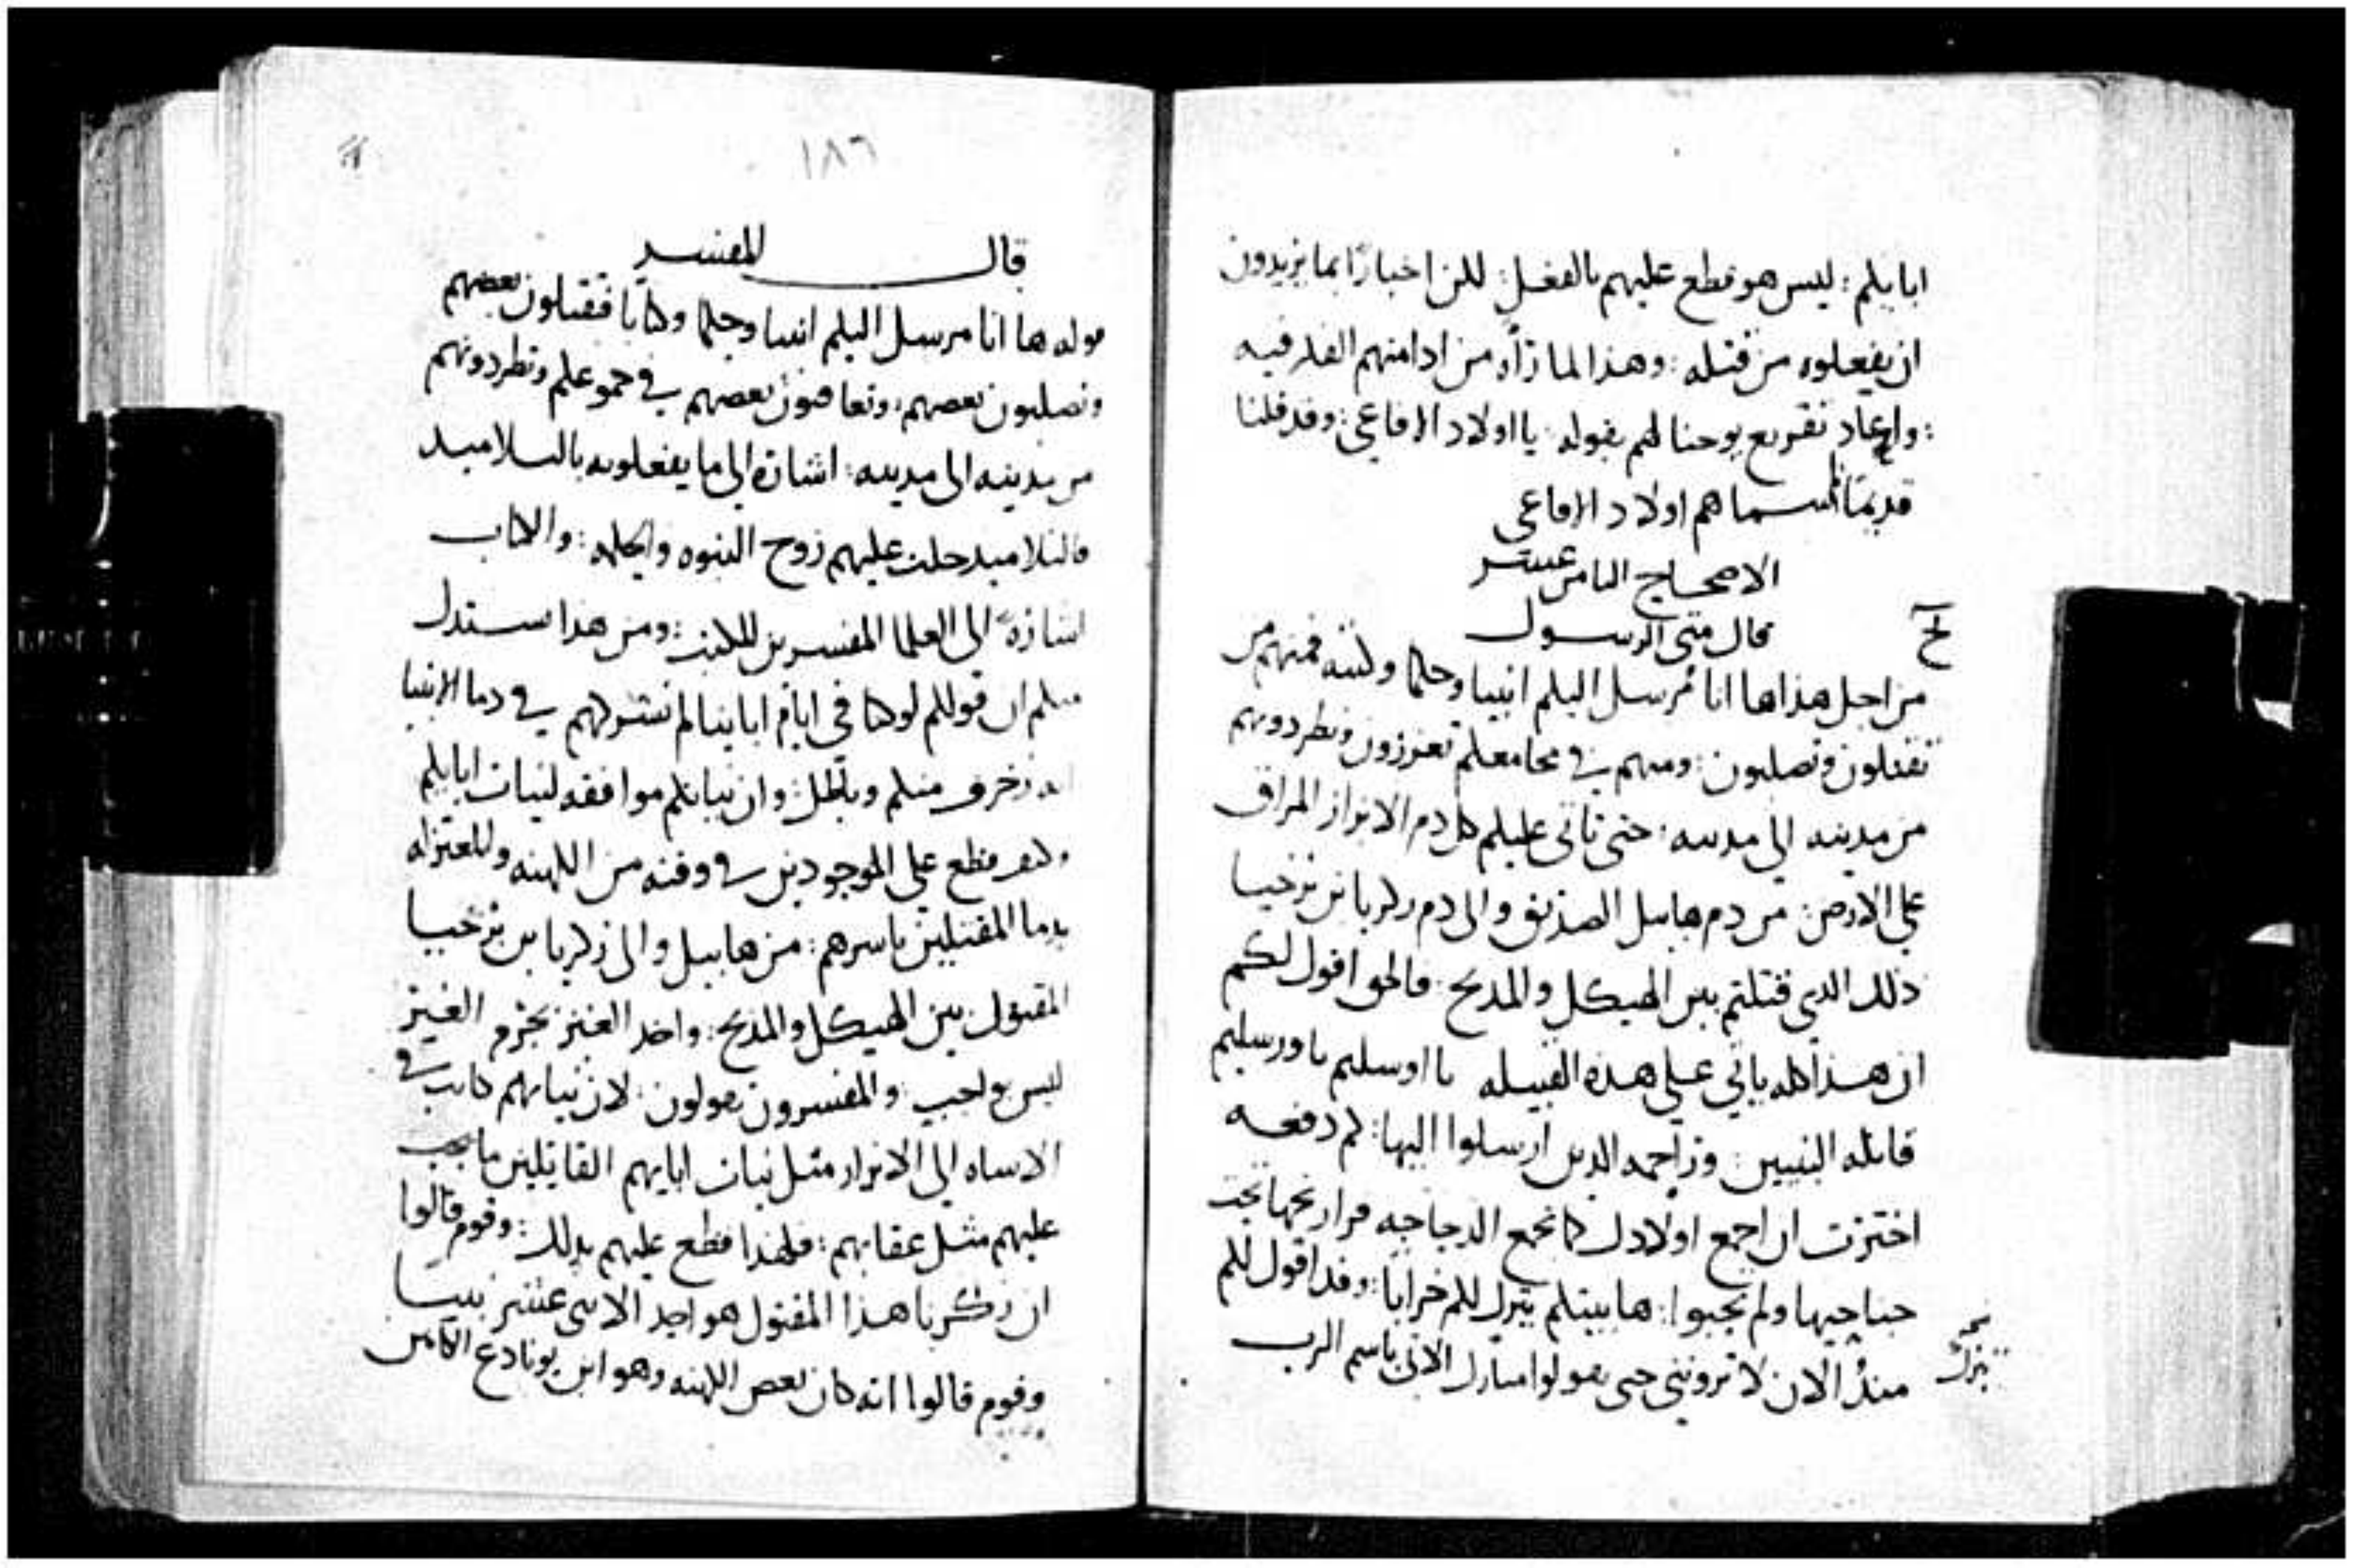 ابايكم : ليس هو قطع عليهم بالفعل : لكن اخبارًا بما يريدون
ان يفعلوه من قتله : وهذا لما رآه من ادامتهم الفكر فيه
: واعاد تقريع يوحنا لهم بقوله : يا اولاد الافاعي : وقد قلنا
قديمًا لم سماهم اولاد الافاعي
الاصحاح الثامن عشر
قال متى الرسول
من اجل هذا ها انا مرسل اليكم انبيا وحكما وكتبه فمنهم من
تقتلون وتصلبون : ومنهم في مجامعكم تعزرون وتطردونهم
من مدينه الى مدينه : حتى تاتي عليكم كل دم الابرار المراق
على الارض من دم هابيل الصديق والى دم زكريا بن برخيا
ذلك الدي قتلتم بين الهيكل والمدبح : فالحق اقول لكم
ان هذا كله ياتي على هذه القبيله يا اوسليم يا ورسليم
قاتله النبيين : وراجمه الدين ارسلوا اليها : كم دفعه
اخترت ان اجمع اولادك كما تجمع الدجاجه فراريجها تحت
جناحيها ولم تجبوا : ها بيتكم يترك لكم خرابا : وقد اقول لكم
منذ الان لا تروننى حتى تقولوا مبارك الاتى باسم الرب
يترك
١٨٦
قال المفسر
قوله ها انا مرسل اليكم انبيا وحكما وكتابا فتقتلون بعضهم
وتصلبون بعضهم : وتعاقبون بعضهم في جموعكم وتطردونهم
من مدينه الى مدينه : اشارة الى ما يفعلونه بالتلاميد
فالتلاميد حلت عليهم روح النبوه والحكمه : والكتاب
اشارةً الى العلما المفسرين للكتب : ومن هدا يستدل
منكم ان قولكم لو كنا في ايام اباينا لم نشركهم في دما الانبيا
زخرف منكم وباطل : وان نياتكم موافقه لنيات ابايكم
قطع على الموجودين في وقته من الكهنه والمعتزله
بدما المقتيلين باسرهم : من هابيل والى زكريا بن برخيا
المقتول بين الهيكل والمدبح : واخد الغير بجرم الغير
ليس بواجب : والمفسرون يقولون : لان نياتهم كانت في
الاساه الى الابرار مثل نيات ابايهم القاتلين ما يجب
عليهم مثل عقابهم : فلهدا قطع عليهم بدلك : وقوم قالوا
ان زكريا هدا المقتول هو احد الاثنى عشر نبيا
وقوم قالوا انه كان بعض الكهنه وهو ابن يونادع الكاهن